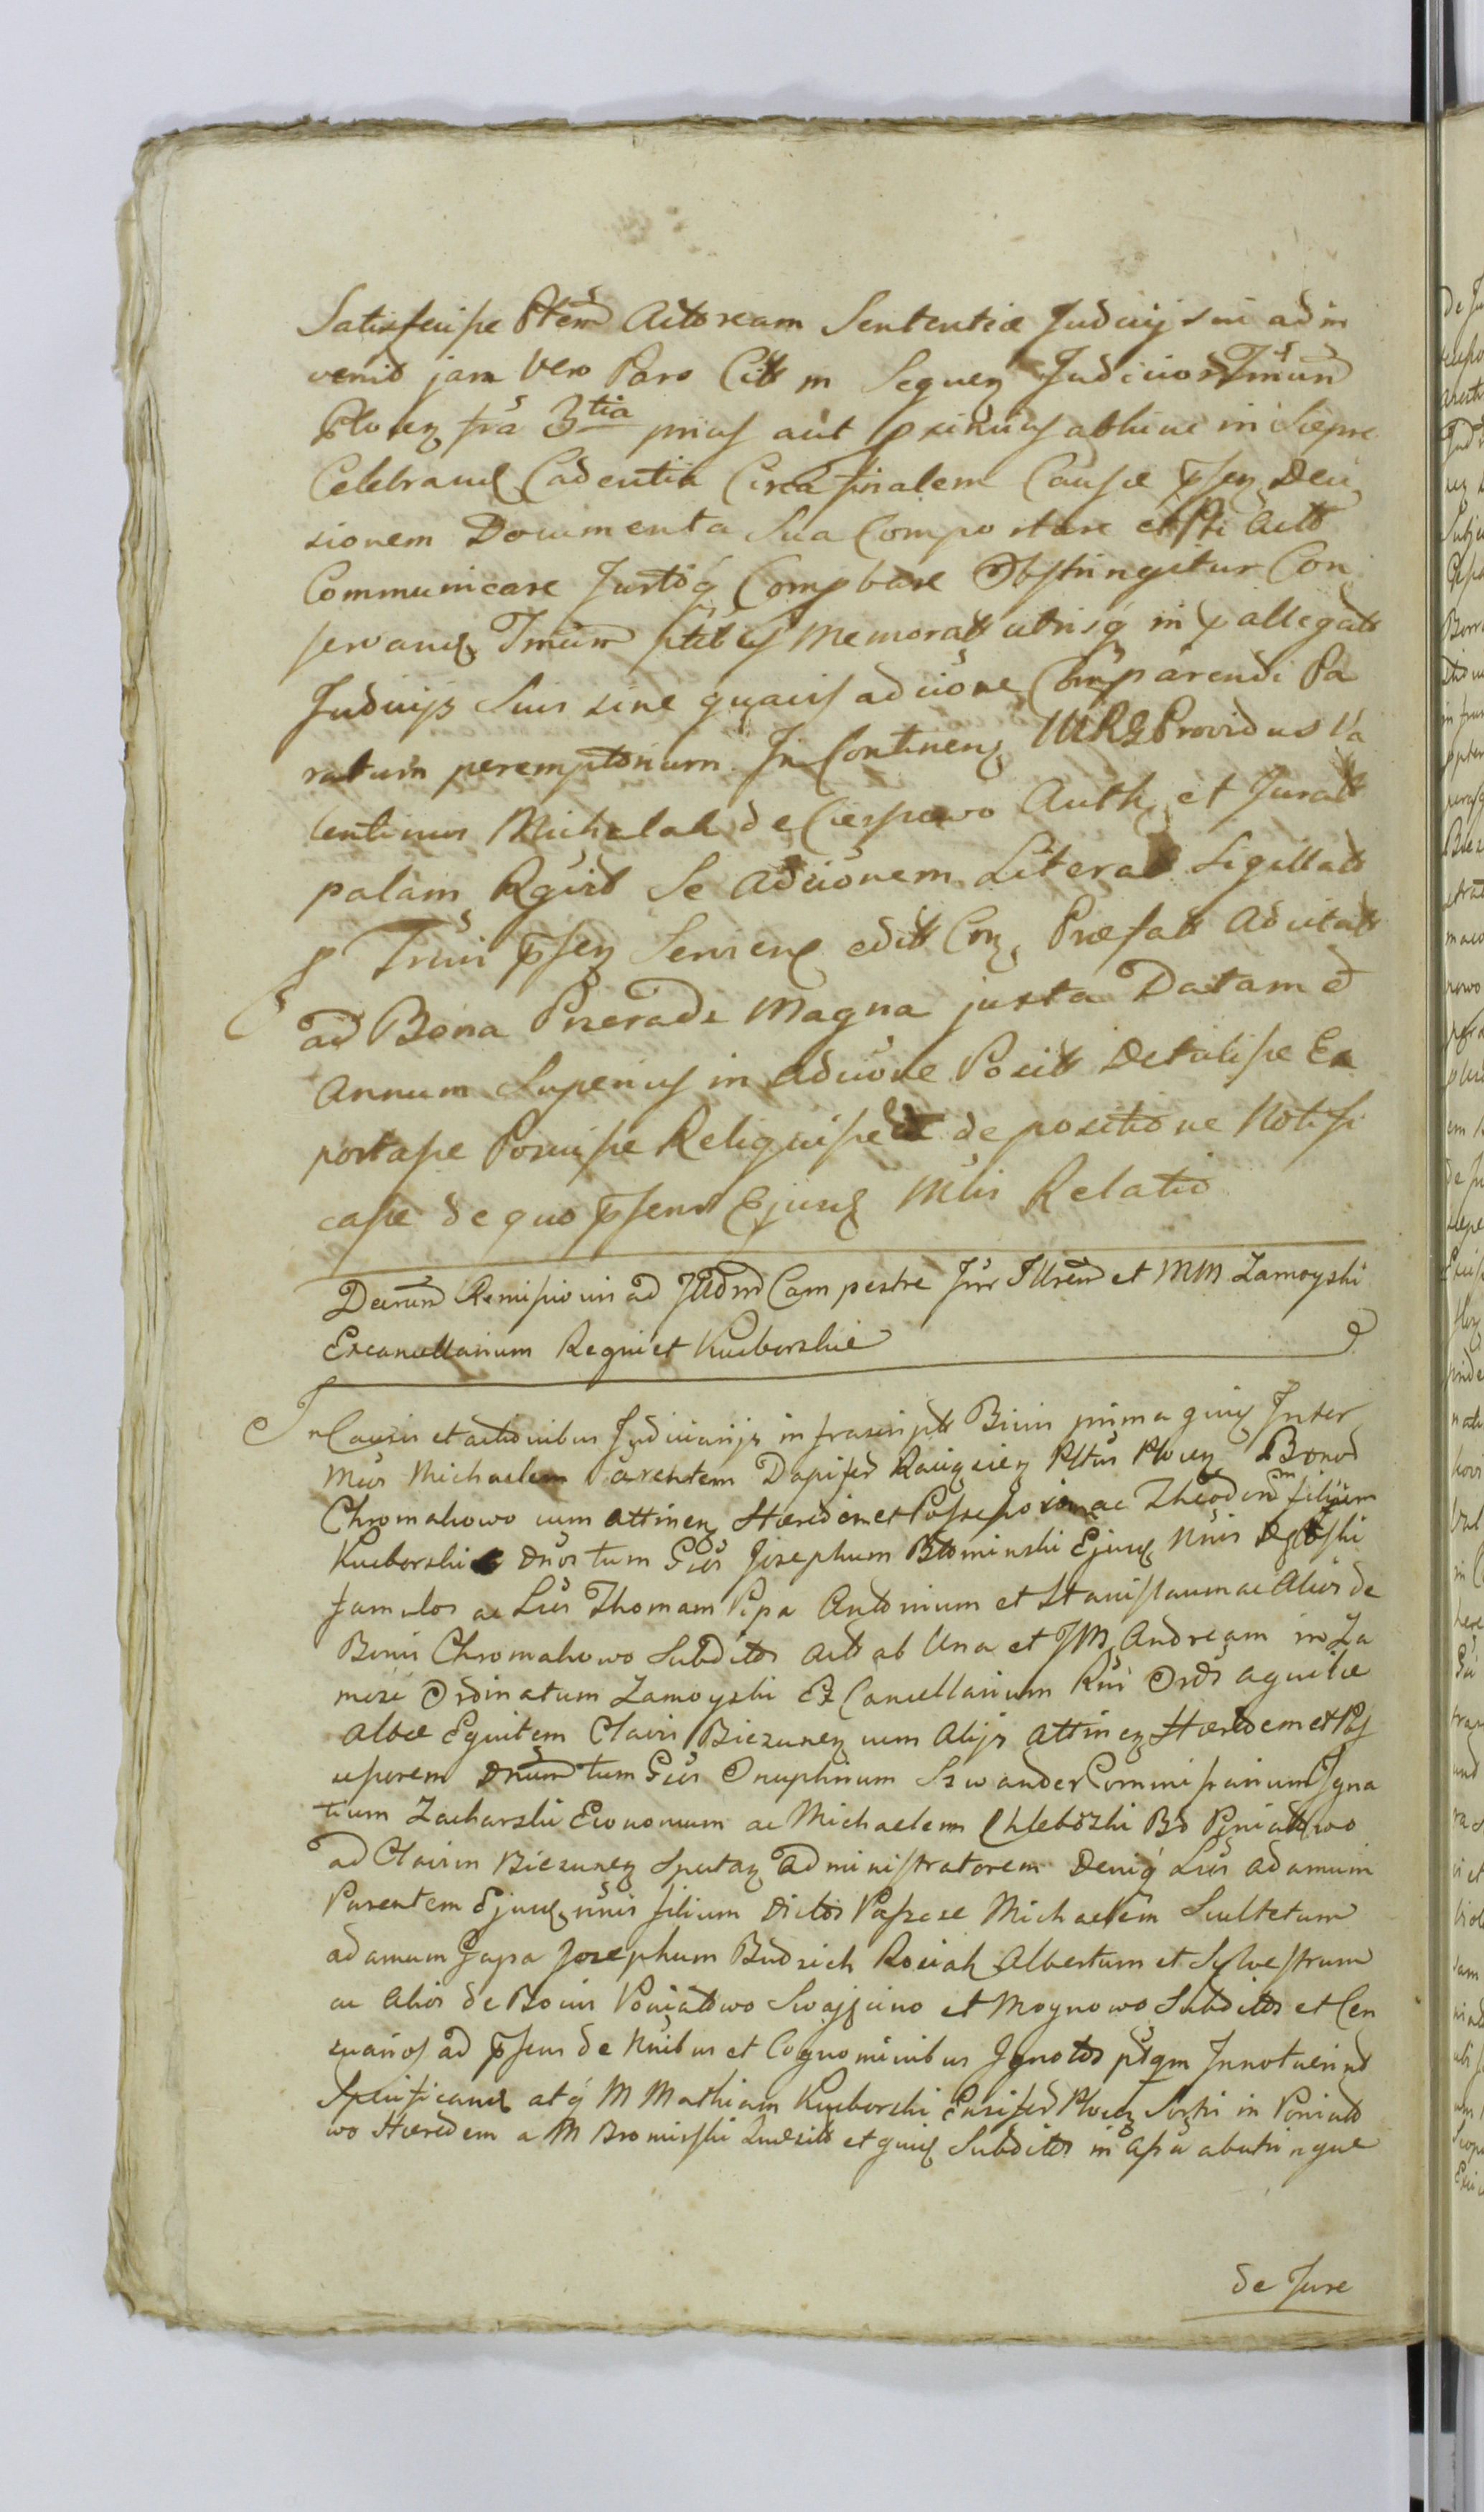 Satisfecisse Ptem Actoream Sententiæ Judicij sui adin
venit jam vero Pars Citt in Sequen Judicior Tmum
Plocen fra 3tia prius aut
Celebrand Cadentia Circa finalem Causæ psen Deci
sionem Documenta Sua Comportare et Pti Actt
Communicare Justoq Comp bare Obstringitur Con
servand Tmum ptibus Memoratt utrisq in p allegatt
Judicijs Suis sine quavis adcione Comparendi Pa
ratum peremptorium In Continen MRG Providus Va
lentinus Michalak de Cierpiewo Auth et Juratt
palam Rgvit Se Adcionem Literat Sigillatt
p Tmi psen Servien editt Con Præfatt Adcitatt
ad Bona Pnerade Magna juxta Datam &
Annum Superius in Adcione Positt Detulisse Ex
portasse Posuisse Reliquisse de positione Notifi
casse de quo psens Ejusd Mlis Relatio
Decrum Remissionis ad Judm Campestre Inr Illrem et MM Zamoyski
Excancellarium Regni et Kucborskie
In Causis et actionibus Judiciarijs infrascriptt Binis prima quid Inter
Mcos Michaelem Parentem Dapifer Raciązien Pltus Plocen Bonor
Chromakowo cum attinen Hæredem et Possessorem ac Theodor filium
Kucborskie Dnos tum Gsos Josephum Błominski Ejusd Nnis
famulos ac Lsos Thomam Pipa Antonium et Stanislaum ac Alios de
Bonis Chromakowo Subditos Actt ab Una et JM Andream in Za
mosc Ordinatum Zamoyski Ex Cancellarium Rni Ords aquilæ
Albæ Equitem Clavis Biezunen cum Alijs attinen Hæredem et Pos
sessorem Dnum tum Gsos Onuphrium Szwander Commissarium Igna
tium Zacharski Economum ac Michaelem Chlebozki Bo Poniattowo
ad Clavim Biezunen Spectan Administratorem Deniq Lsos Adamum
Parentem Ejusd nnis filium dictos Passese Michaelem Scultetum
adamum Gapa Josephum Budzich Rosiak Albertum et Sylvestrum
ac Alios de Bonis Poniatowo Swojęcino et Moynowo Subditos et Cen
suarios ad psens de Nnibus et Cognominibus Ignotos ptqm Innotuerint
Specificand atq M Mathiam Kucborski Ensifer Plocen Sortis in Poniato
wo Hæredem a M Bromirski Quæsitt et quid Subditos in Assa abutrinque
de Jure